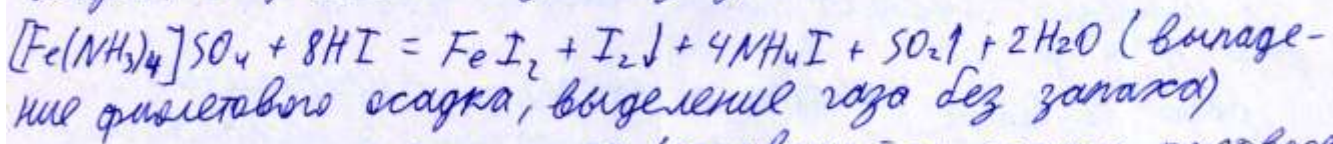 [Fe(NH₃)₄]SO₄ + 8HI = FeI₂ + I₂↓ + 4NH₄I + SO₂↑ + 2H₂O (выпаде-
ние фиолетового осадка, выделение газа без запаха)